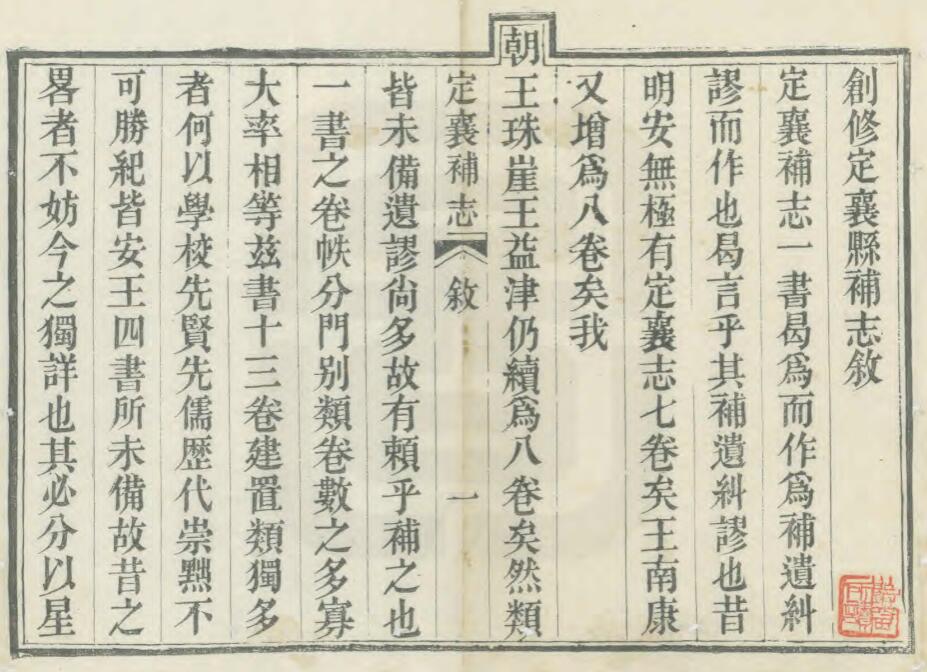 創修定襄縣補志敘
定襄補志一書曷爲而作爲補遺糾
謬而作也曷言乎其補遺糾謬也昔
明安無極有定襄志七卷矣王南康
又增爲八卷矣我
朝
王珠崖王益津仍續爲八卷矣然類
定襄補志 敘 一
皆未備遺謬尙多故有頼乎補之也
一書之卷帙分門別類卷數之多寡
大率相等茲書十三卷建置類獨多
者何以學校先賢先儒歷代崇黜不
可勝紀皆安王四書所未備故昔之
畧者不妨今之獨詳也其必分以星